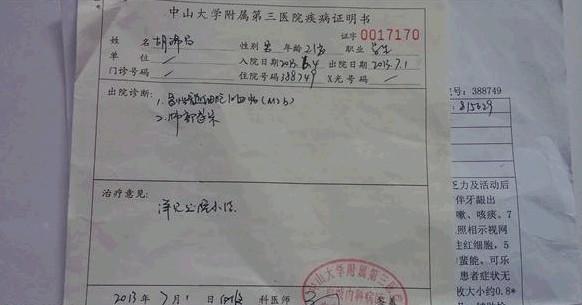 中山大学附属第三医院疾病证明书
证字 0017170
姓名 性别 男 年龄 21岁 职业 学生
单位 / 入院日期 2013. .4 出院日期 2013.7.1
门诊号码 / 住院号码 388749 X光号码 /
号: 388749
出院诊断: 1. 急性 白血病(M2b)
: 815629
2. 肺部感染
乏力及活动后
伴牙龈出
嗽、咳痰。7
治疗意见:
照相示视网
性红细胞, 5
详见出院小结
萤能、可乐
患者症状无
中山大学附属第三
收大小约0.8*
内科
2013 年 7 月 1 日 科医师 签